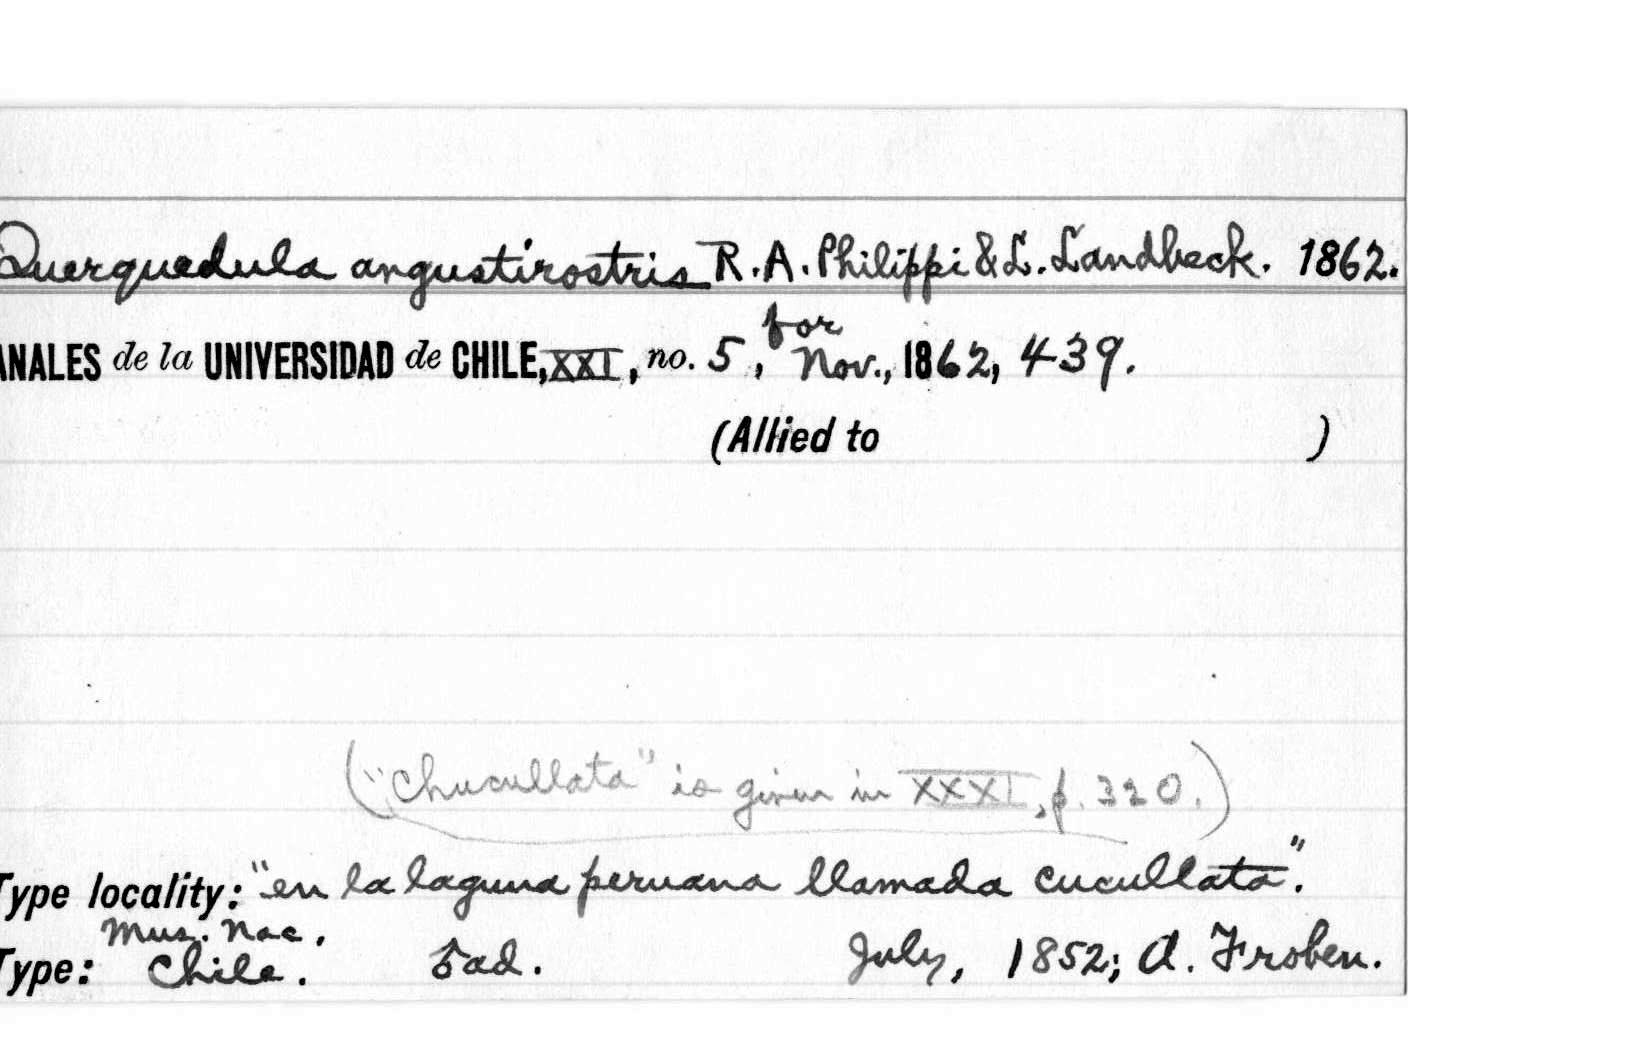 Querquedula angustirostris R.A. Philippi & L. Landbeck. 1862.
for
ANALES de la UNIVERSIDAD de CHILE, XXI, no. 5, Nov., 1862, 439.
(Allied to )
("Chucullata" is given in XXXI, p. 320.)
Type locality: "en la laguna peruana llamada cucullata".
Mus. Nac.
Type: Chile. ad. July, 1852; A. Froben.